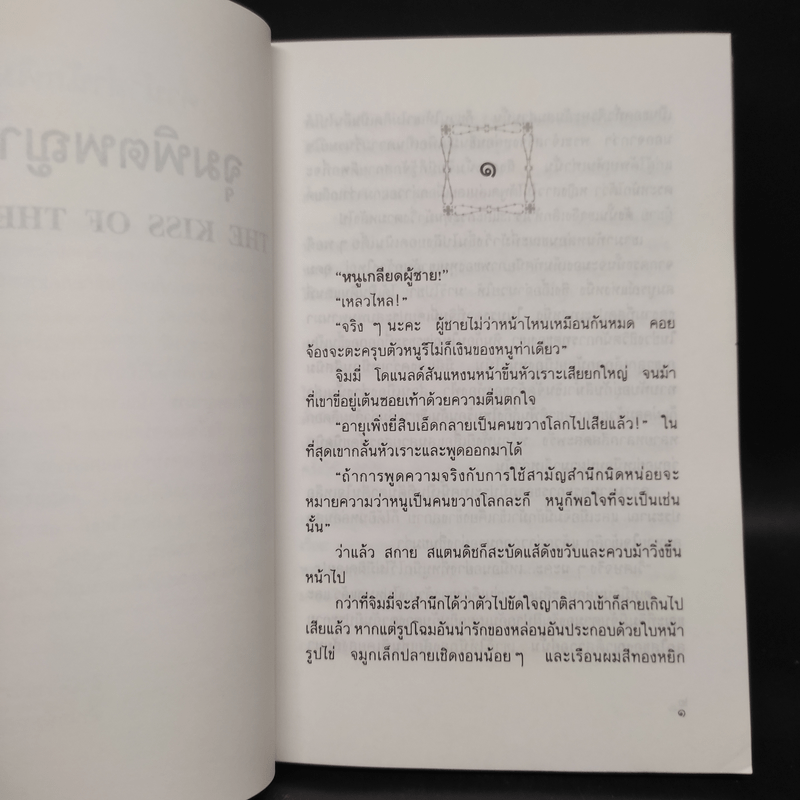 จุมพิตพญา
THE KISS OF THE
๑
"หนูเกลียดผู้ชาย!"
"เหลวไหล!"
"จริง ๆ นะคะ ผู้ชายไม่ว่าหน้าไหนเหมือนกันหมด คอย
จ้องจะตะครุบตัวหนูรึไม่ก็เงินของหนูท่าเดียว"
จิมมี่ โดแนลด์สันแหงนหน้าขึ้นหัวเราะเสียยกใหญ่ จนม้า
ที่เขาขี่อยู่เต้นซอยเท้าด้วยความตื่นตกใจ
"อายุเพิ่งยี่สิบเอ็ดกลายเป็นคนขวางโลกไปเสียแล้ว!" ใน
ที่สุดเขากลั้นหัวเราะและพูดออกมาได้
"ถ้าการพูดความจริงกับการใช้สามัญสำนึกนิดหน่อยจะ
หมายความว่าหนูเป็นคนขวางโลกละก็ หนูก็พอใจที่จะเป็นเช่น
นั้น"
ว่าแล้ว สกาย สแตนดิชก็สะบัดแส้ดังขวับและควบม้าวิ่งขึ้น
หน้าไป
กว่าที่จิมมี่จะสำนึกได้ว่าตัวไปขัดใจญาติสาวเข้าก็สายเกินไป
เสียแล้ว หากแต่รูปโฉมอันน่ารักของหล่อนอันประกอบด้วยใบหน้า
รูปไข่ จมูกเล็กปลายเชิดงอนน้อย ๆ และเรือนผมสีทองหยิก
๑